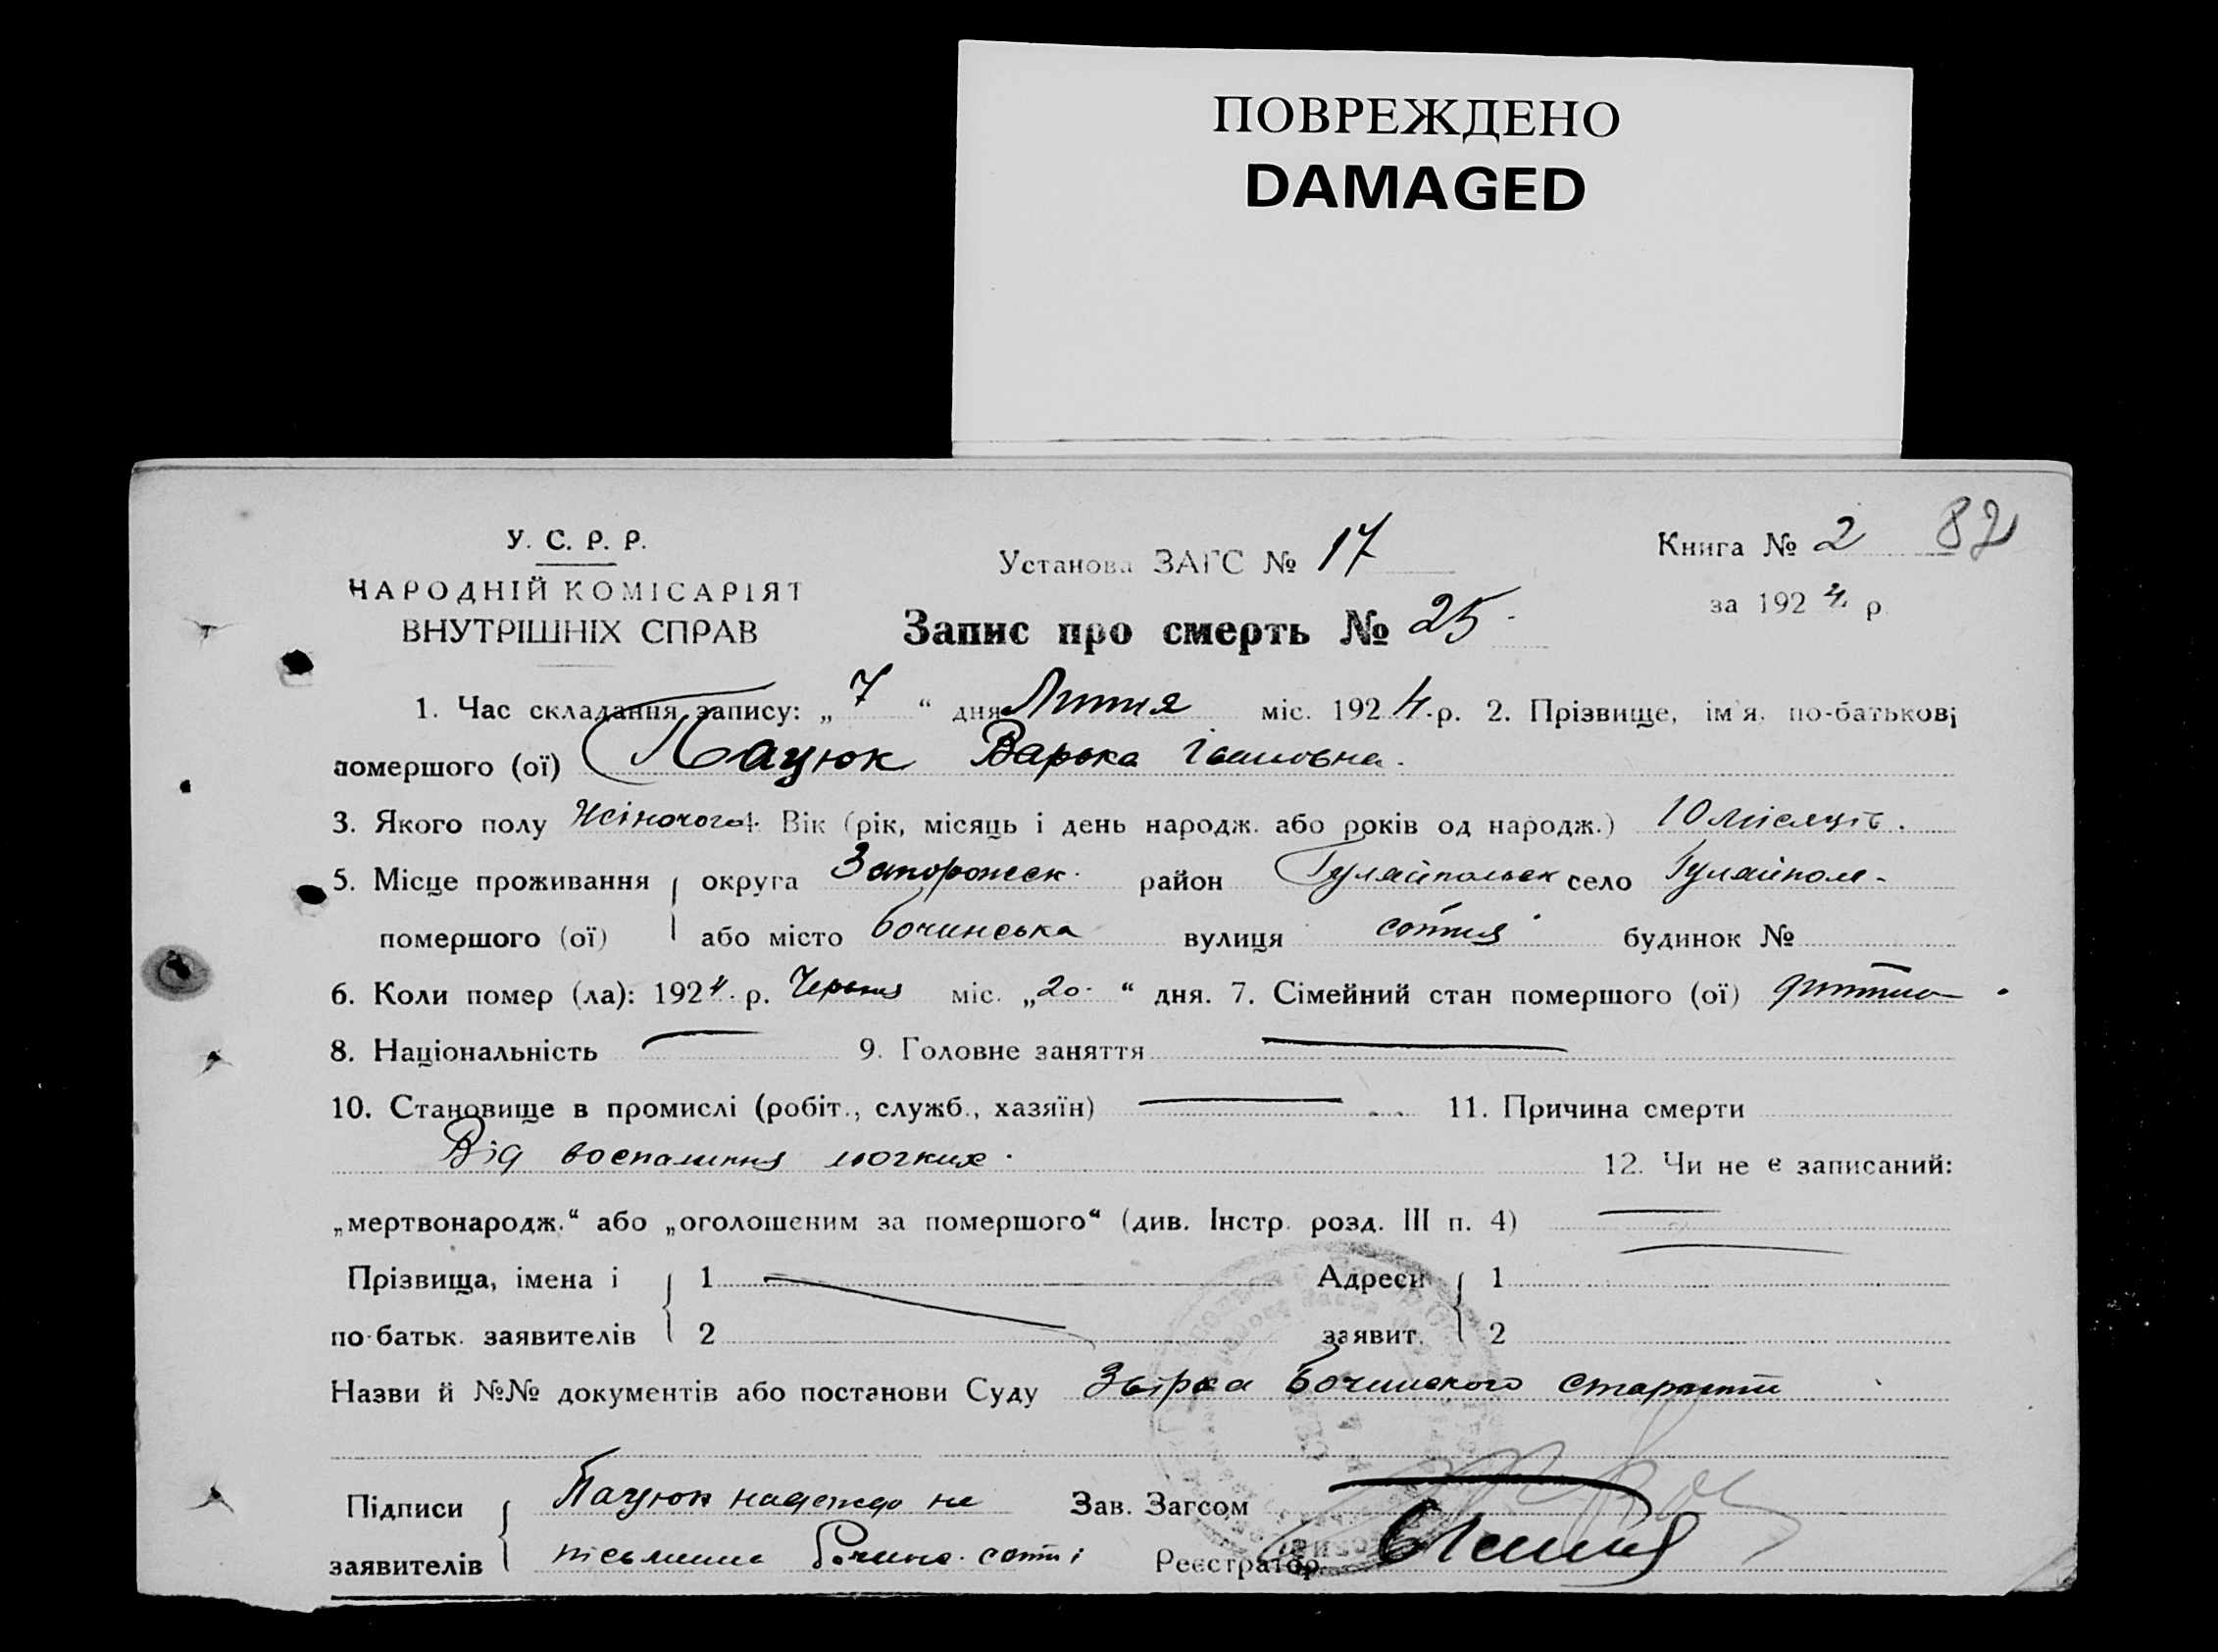 ПОВРЕЖДЕНО
DAMAGED
У. С. Р. Р.
НАРОДНІЙ КОМІСАРІЯТ
ВНУТРІШНІХ СПРАВ
Установа ЗАГС № 17
Книга № 2 82
за 1924 р.
Запис про смерть № 25
1. Час складання запису: „7“ дня Липня міс. 1924 р. 2. Прізвище, ім'я, по-батькові
помершого (ої) Пацюк Варька Івановна.
3. Якого полу Жіночого 4. Вік (рік, місяць і день народж. або років од народж.) 10 місяців.
5. Місце проживання округа Запорожск. район Гуляйпольськ село Гуляйполе
помершого (ої) або місто Бочинська вулиця сотня будинок №
6. Коли помер (ла): 1924 р. Червня міс. „20“ дня. 7. Сімейний стан помершого (ої) дитина
8. Національність — 9. Головне заняття —
10. Становище в промислі (робіт., служб., хазяїн) — 11. Причина смерти
Від воспаління легких. 12. Чи не є записаний:
„мертвонародж.“ або „оголошеним за помершого“ (див. Інстр. розд. III п. 4) —
Прізвища, імена і 1 Адреси 1
по-батьк. заявителів 2 заявит. 2
Назви й №№ документів або постанови Суду Бочинского
Підписи Пацюк Надежда не Зав. Загсом
заявителів письменна сотні Реєстратор